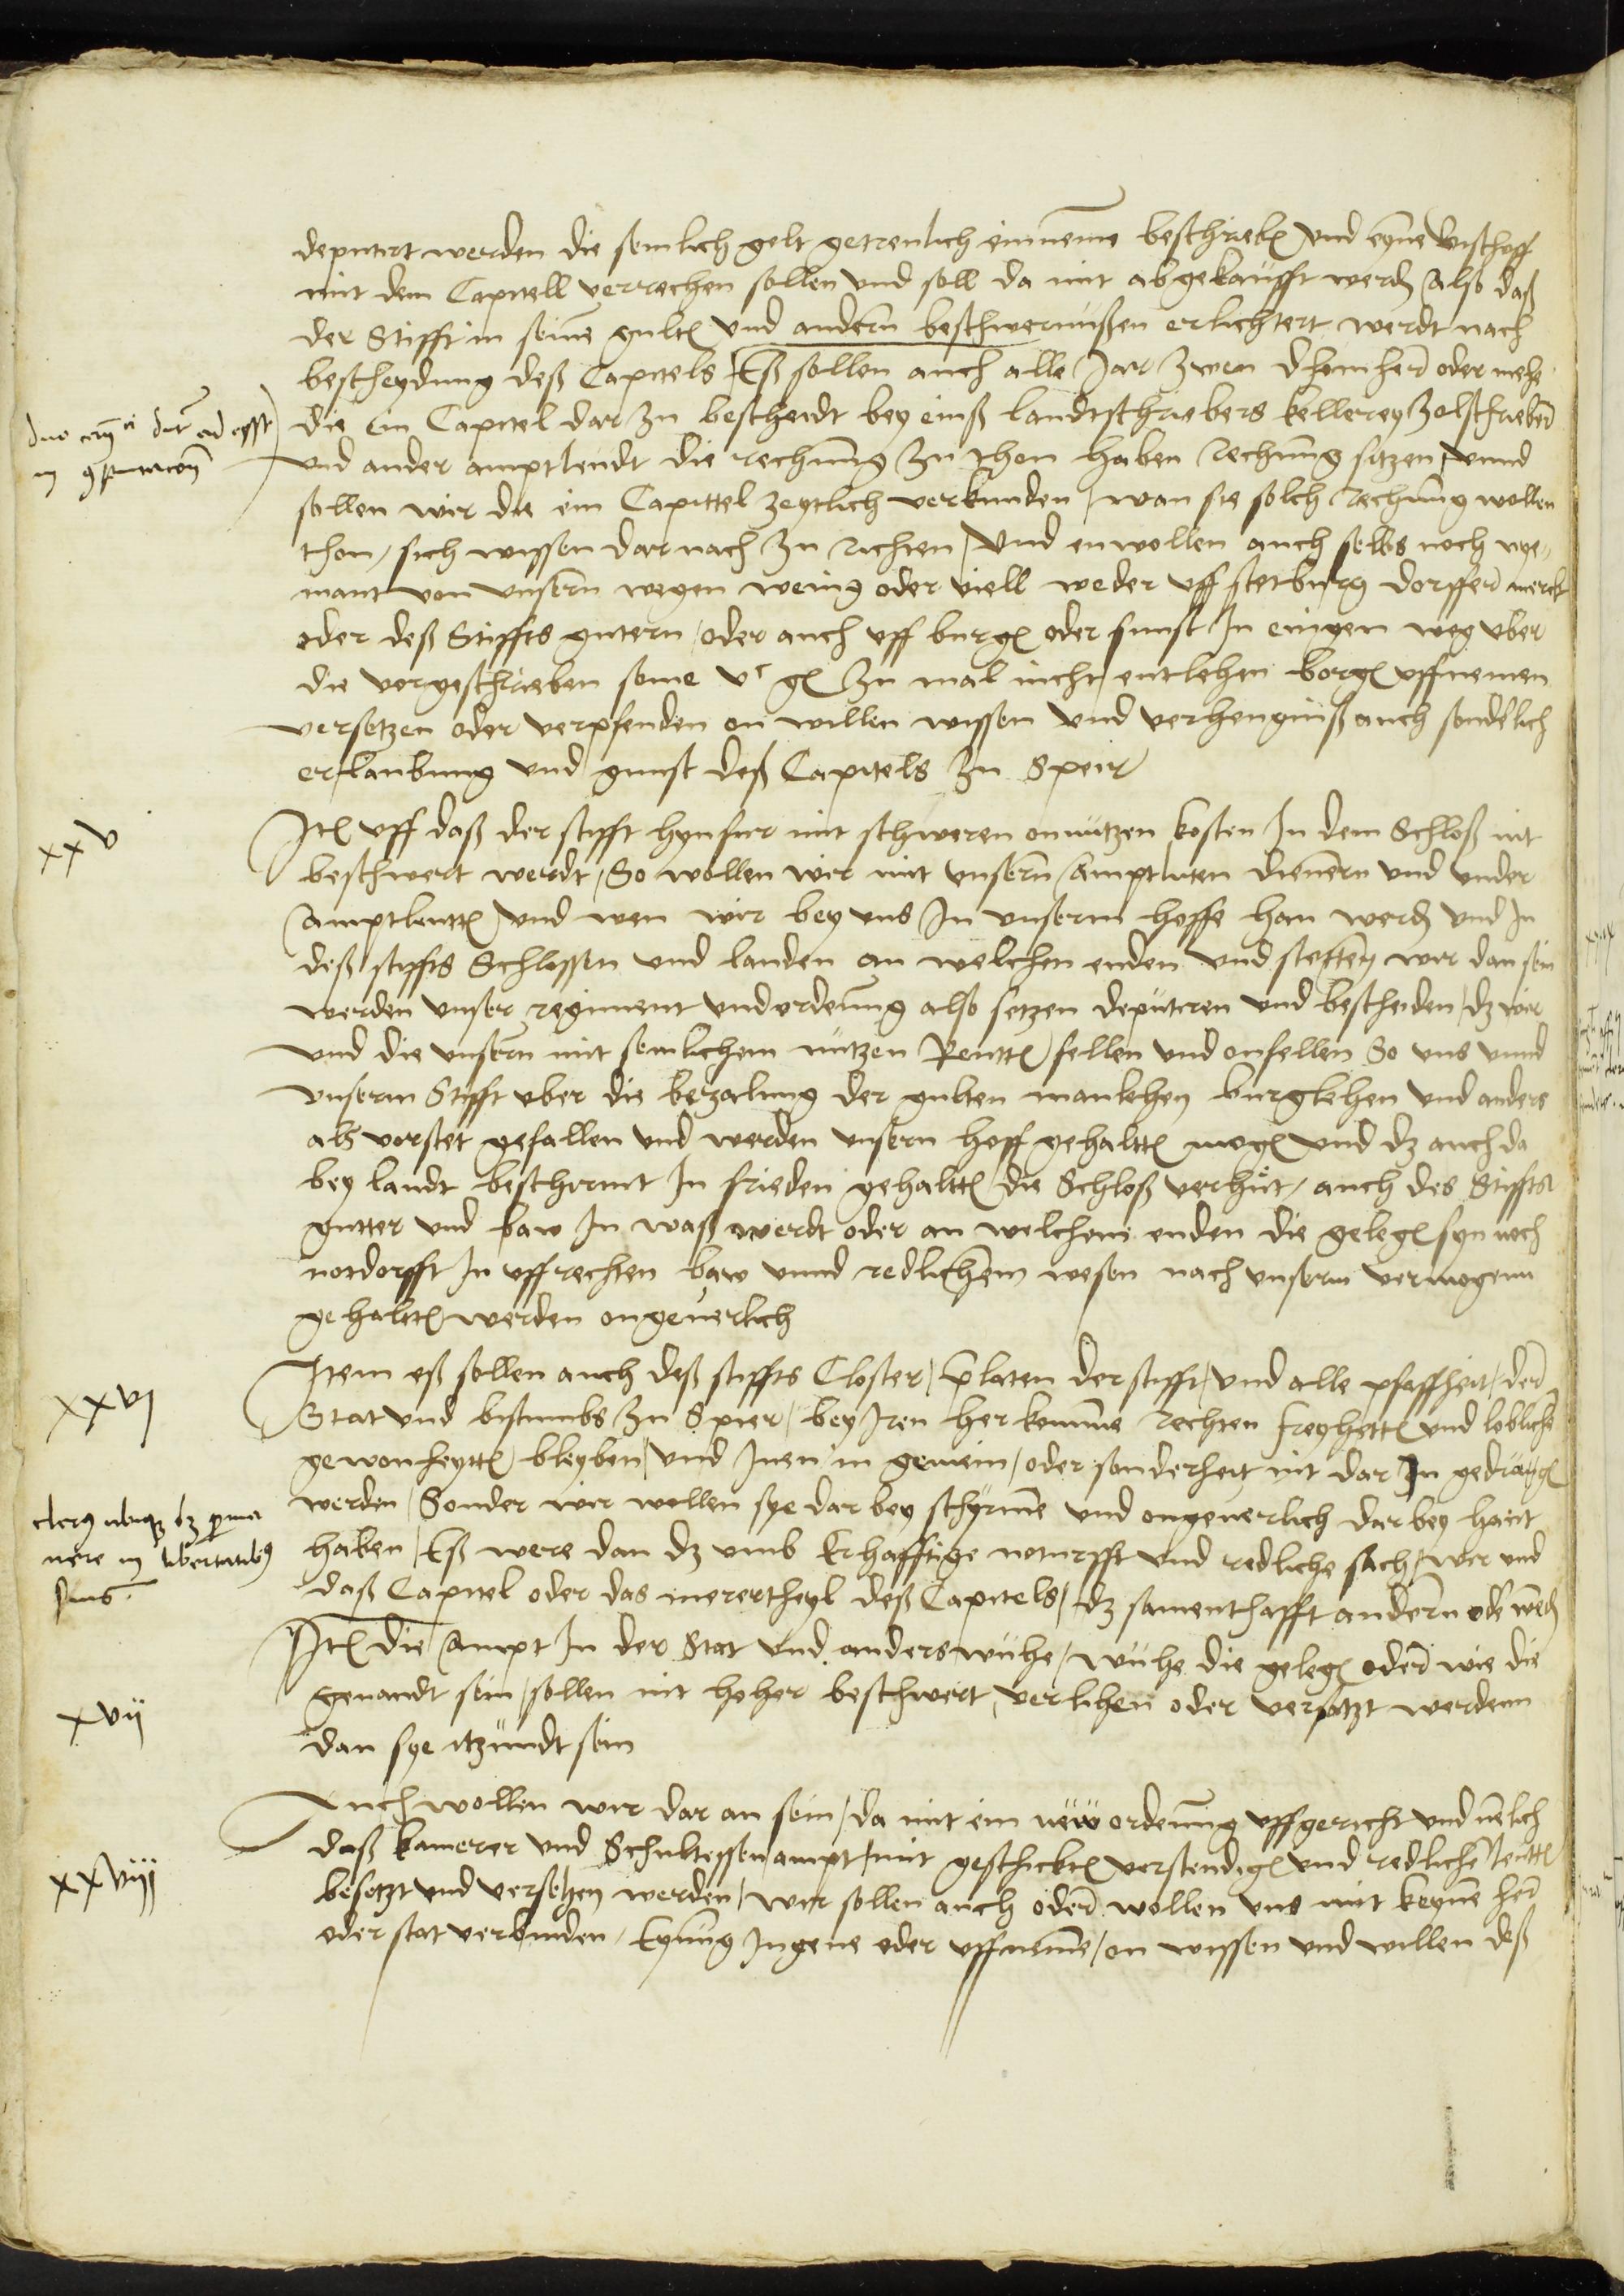 deputirt werden die semlich gelt getreulich einneme beschrieb und eyne bischoff
mit dem Capitell verrechen sollen und soll da mit abgekaufft werd also daß
der Stifft in seine gult und andern beschwernußen erlichtert werdt nach
bescheydung deß Capitels / Eß sollen auch alle Jar zwen dhomher oder mehe
die ein Capitel dar zu bescheidt bey einß landtschriebers kellerey zolschriebers
und ander amptleudt die rechnung zu thon haben Rechnung sitzen / unnd
sollen wir die eim Capittel zeytlich verkunden / wan sie solch Rechnung wollen
thon / sich wissen darnach zu richten / Und enwollen auch selbs noch nye-
mant von unsern wegen weing oder viell weder uff stet burg dorffer merckt
oder deß Stiffts gutern / oder auch uff burg oder sunst In eingen weg uber
die vorgeschrieben some zu mal nicht entlehen borg uffnemen
versetzen oder verpfenden on willen wissen und verhengniß auch sonderlich
erlaubung und gunst deß Capitels zu Speir
xxv
It uff daß der stifft hynfur mit schweren onnutzen kosten In dem Schloß nit
beschwert werdt / So wollen wir mit unsern Amptluten dienern und under
Amptleutt und wen wir bey uns In unserm hoffe han werd und In
deß stiffts Schlossen und landen an welchen enden und stetten wir dan sein
werden unser regiment und ordenung also setzen deputiren und bescheiden / dz wir
und die unsern mit semlichem nutzen Rentt fellen und onfellen So uns unnd
unserm Stifft uber die bezalung der gulten manlehen burglehen und anders
als vorstet gefallen und werden unsern hoff gehaltt mog und dz auch da
bey landt beschirmt In frieden gehaltt die Schloß verhut / auch des Stiffts
gutter und baw In waß werdt oder an welchem enden die geleg syn noch
nordorfft In uffrechten baw unnd redlichem wesen nach unserm vermogenn
gehaltt werden ongeuerlich
xxvi
Item eß sollen auch deß stiffts Closter / p̄laten der stifft / und alle pfaffheit / der
Stat und bistumbs zu Speier / bey Iren herkomme rechten freyheitt und lobliche
gewonheytt bleyben / und Inen in gemein / oder sonderheit nit dar In gedrang
werden / Sonder wir wollen sye dar bey schyrme und ongeuerlich darbey hant
haben / Eß were dan dz umb Erhafftige noturfft und redliche sach / wir und
daß Capitel oder das merertheyl deß Capitels / dz samenthafft andern oder
xvii
It die Ampt In der Stat und anderswuhe / wuhe die geleg oder wie die
genandt sein / sollen nit hoher beschwert / verlihen oder versatzt werdenn
dan sye itzundt sein
xxviii
Auch wollen wir dar an sein / da mit ein new ordenung uffgericht und
daß kamerer und Schultessen ampt / mit geschickt verstendig und redliche leutt
besetzt und versehen werden / wir sollen auch oder wollen uns mit keyne her
oder stat verbinden / Eynung Ingene oder uffneme / on wissen und willen deß